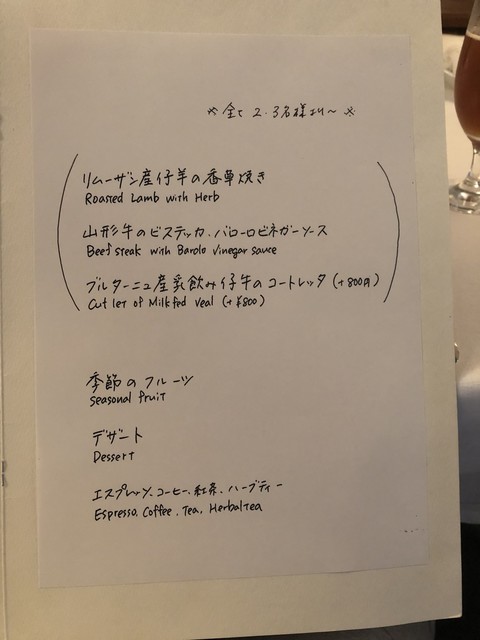 ※ 全て 2.3名様より〜 ※
リムーザン産仔羊の香草焼き
Roasted Lamb with Herb
山形牛のビステッカ、バローロビネガーソース
Beef steak with Barolo Vinegar sauce
ブルターニュ産乳飲み仔牛のコートレッタ (+800円)
Cutlet of Milkfed Veal (+¥800)
季節のフルーツ
seasonal fruit
デザート
Dessert
エスプレッソ、コーヒー、紅茶、ハーブティー
Espresso, Coffee, Tea, Herbaltea